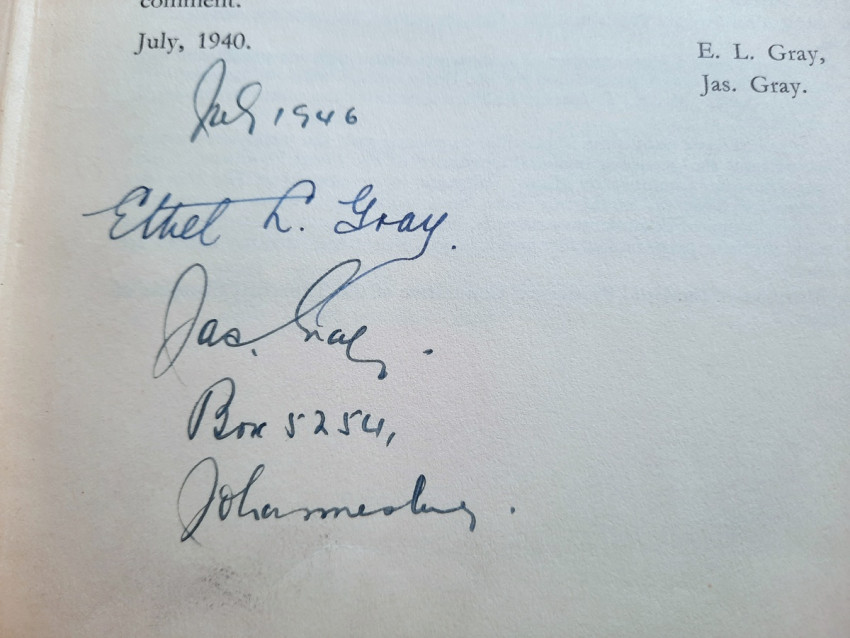 comment.
July, 1940.
E. L. Gray,
Jas. Gray.
July 1946
Ethel L. Gray.
Jas. Gray.
Box 5254,
Johannesburg.